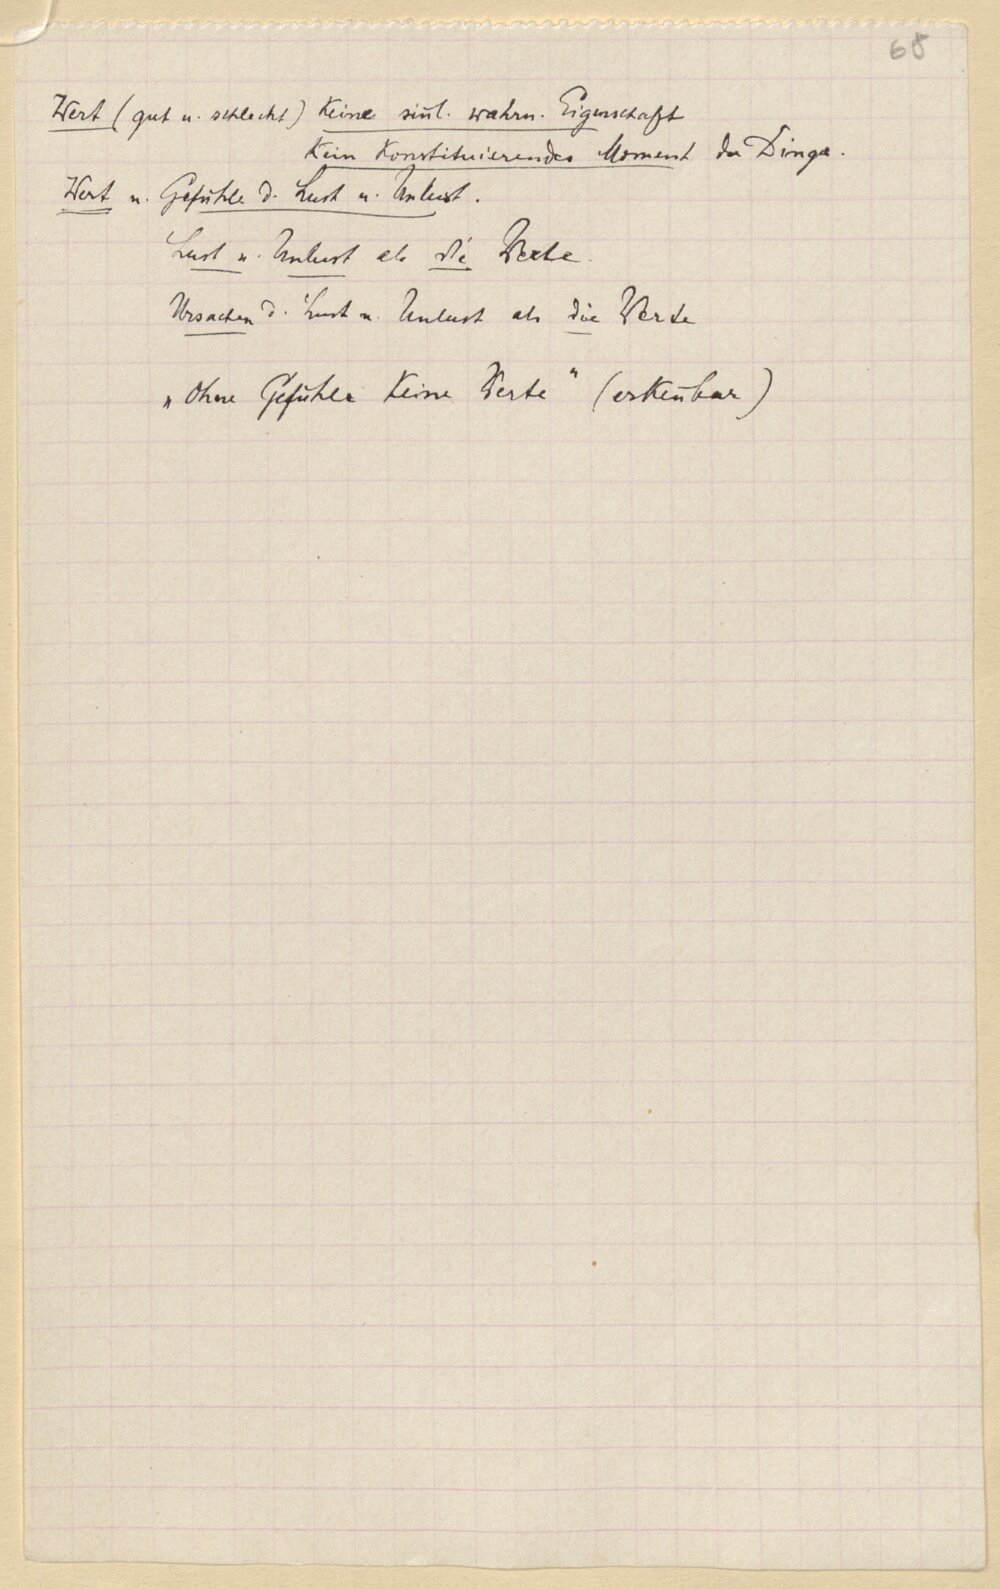 68
Wert (gut u. schlecht) Keine sinl. wahrn. Eigenschaft
Kein Konstituierendes Moment der Dinge.
Wert u. Gefühle d. Lust u. Unlust.
Lust u. Unlust als die Werte.
Ursachen d. Lust u. Unlust als die Werte
„Ohne Gefühle Keine Werte“ (erkenbar)